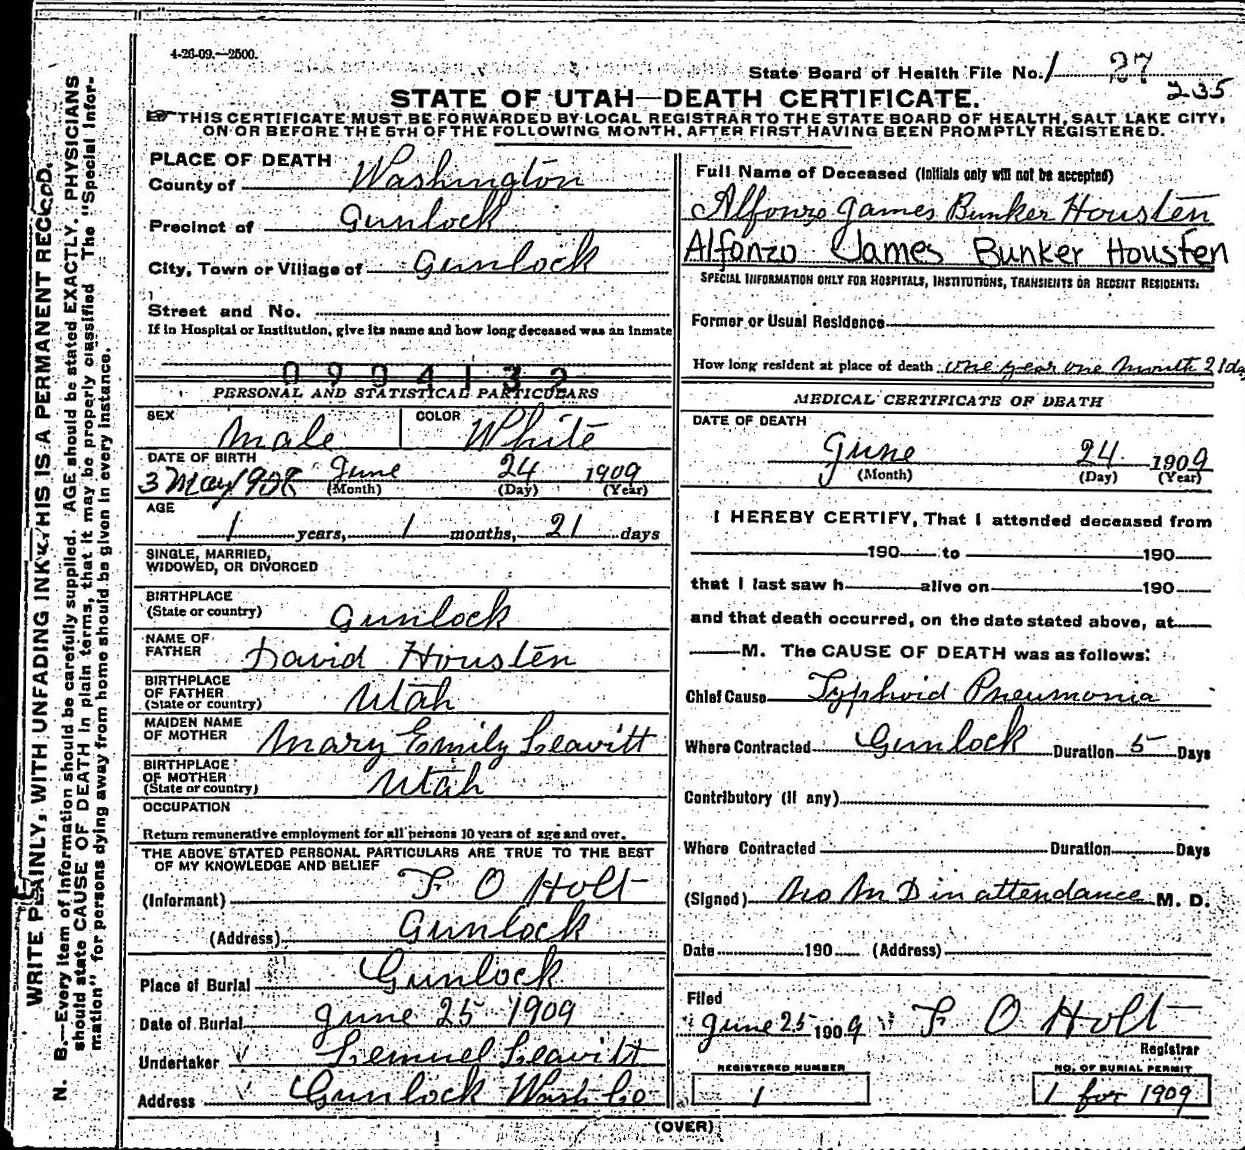 4-26-09.—2500.
State Board of Health File No. 1 27
235
STATE OF UTAH—DEATH CERTIFICATE.
THIS CERTIFICATE MUST BE FORWARDED BY LOCAL REGISTRAR TO THE STATE BOARD OF HEALTH, SALT LAKE CITY,
ON OR BEFORE THE 5TH OF THE FOLLOWING MONTH, AFTER FIRST HAVING BEEN PROMPTLY REGISTERED.
WRITE PLAINLY, WITH UNFADING INK. THIS IS A PERMANENT RECORD.
N. B.—Every item of information should be carefully supplied. AGE should be stated EXACTLY. PHYSICIANS
should state CAUSE OF DEATH in plain terms, that it may be properly classified The "Special Infor-
mation" for persons dying away from home should be given in every instance.
PLACE OF DEATH
County of Washington
Precinct of Gunlock
City, Town or Village of Gunlock
Street and No.
If in Hospital or Institution, give its name and how long deceased was an inmate
0904132
PERSONAL AND STATISTICAL PARTICULARS
SEX Male COLOR White
DATE OF BIRTH
3 May 1908 June 24 1909
(Month) (Day) (Year)
AGE
1 years, 1 months, 21 days
SINGLE, MARRIED,
WIDOWED, OR DIVORCED
BIRTHPLACE
(State or country) Gunlock
NAME OF
FATHER David Housten
BIRTHPLACE
OF FATHER
(State or country) Utah
MAIDEN NAME
OF MOTHER Mary Emily Leavitt
BIRTHPLACE
OF MOTHER
(State or country) Utah
OCCUPATION
Return remunerative employment for all persons 10 years of age and over.
THE ABOVE STATED PERSONAL PARTICULARS ARE TRUE TO THE BEST
OF MY KNOWLEDGE AND BELIEF
(Informant) F O Holt
(Address) Gunlock
Place of Burial Gunlock
Date of Burial June 25 1909
Undertaker Lemuel Leavitt
Address Gunlock Wash Co
Full Name of Deceased (Initials only will not be accepted)
Alfonzo James Bunker Housten
Alfonzo James Bunker Housten
SPECIAL INFORMATION ONLY FOR HOSPITALS, INSTITUTIONS, TRANSIENTS OR RECENT RESIDENTS.
Former or Usual Residence
How long resident at place of death one year one month 21 day
MEDICAL CERTIFICATE OF DEATH
DATE OF DEATH
June 24 1909
(Month) (Day) (Year)
I HEREBY CERTIFY, That I attended deceased from
190 to 190
that I last saw h alive on 190
and that death occurred, on the date stated above, at
M. The CAUSE OF DEATH was as follows:
Chief Cause Typhoid Pneumonia
Where Contracted Gunlock Duration 5 Days
Contributory (if any)
Where Contracted Duration Days
(Signed) No M D in attendance M. D.
Date 190 (Address)
Filed
June 25 1909 F O Holt
Registrar
REGISTERED NUMBER
1
NO. OF BURIAL PERMIT
1 for 1909
(OVER)